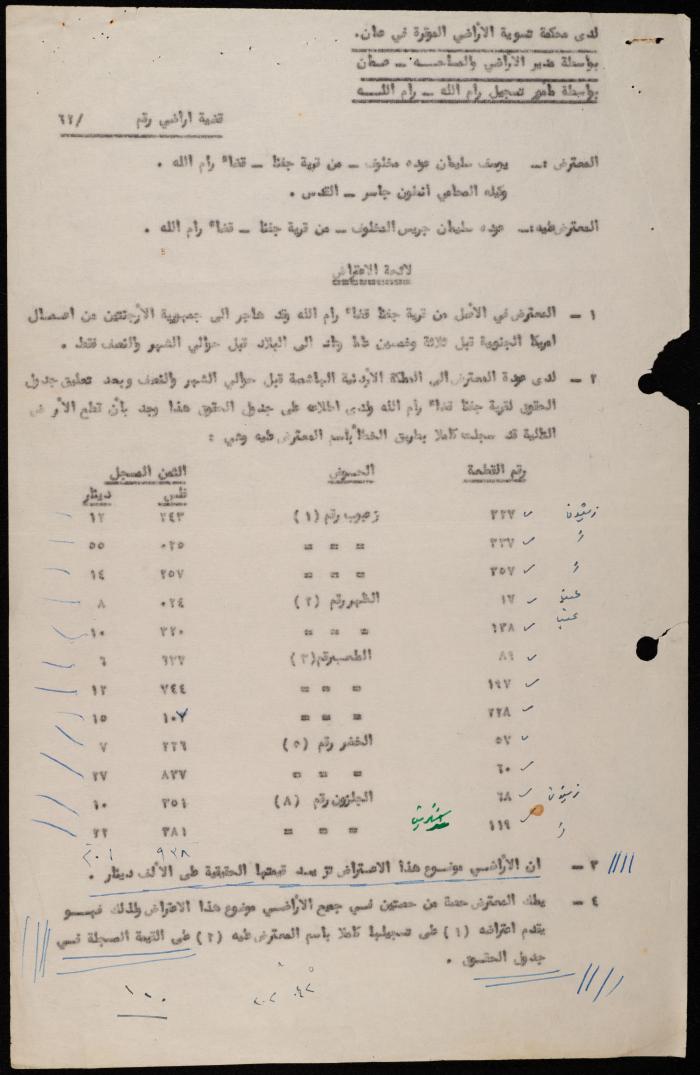 لدى محكمة تسوية الأراضي الموقرة في عمان.
بواسطة مدير الأراضي والمساحة ــ عمان
بواسطة مأمور تسجيل رام الله ــ رام الله
قضية اراضي رقم /٦٦
المعترض :ــ يوسف سليمان عوده مخلوف ــ من قرية جفنا ــ قضاء رام الله .
وكيله المحامي أنطون جاسر ــ القدس .
المعترض عليه :ــ عوده سليمان جريس المخلوف ــ من قرية جفنا ــ قضاء رام الله .
لائحة الاعتراض
١ ــ المعترض في الأصل من قرية جفنا قضاء رام الله وقد هاجر الى جمهورية الأرجنتين من اعمال
امريكا الجنوبية قبل ثلاثة وخمسين عاما وعاد الى البلاد قبل حوالي الشهر والنصف فقط .
٢ ــ لدى عودة المعترض الى المملكة الأردنية الهاشمية قبل حوالي الشهر والنصف وبعد تعليق جدول
الحقوق لقرية جفنا قضاء رام الله ولدى اطلاعه على جدول الحقوق هذا وجد بأن قطع الأرض
التالية قد سجلت كاملا بطريق الخطأ باسم المعترض عليه وهي :
رقم القطعة الحوض الثمن المسجل
فلس دينار
زيتون ٢٢٧ زعبوب رقم (١) ٢٤٣ ١٢
٢٣٧ = = = ٠٢٥ ٥٥
٢٥٧ = = = ٢٥٧ ١٤
عنب ١٧ الظهر رقم (٢) ٠٢٤ ٨
عنب ١٣٨ = = = ٢٢٠ ١٠
٨٩ رقم (٣) ٦٢٧ ٦
١٩٧ = = = ٧٤٤ ١٢
٢٢٨ = = = ١٠٧ ١٥
٥٧ الخفر رقم (٥) ٢٢٦ ٧
٦٠ = = = ٨٣٧ ٢٧
زيتون ٦٨ الجلزون رقم (٨) ٣٥١ ١٠
١١٩ = = = ٣٨١ ٢٢
٩٣٨ ٢٠١
٣ ــ ان الأراضي موضوع هذا الاعتراض تزيد قيمتها الحقيقية على الألف دينار .
٤ ــ يملك المعترض حصة من حصتين في جميع الأراضي موضوع هذا الاعتراض ولذلك فهو
يقدم اعتراضه (١) على تسجيلها كاملا باسم المعترض عليه (٢) على القيمة المسجلة في
جدول الحقوق .
١٠٠